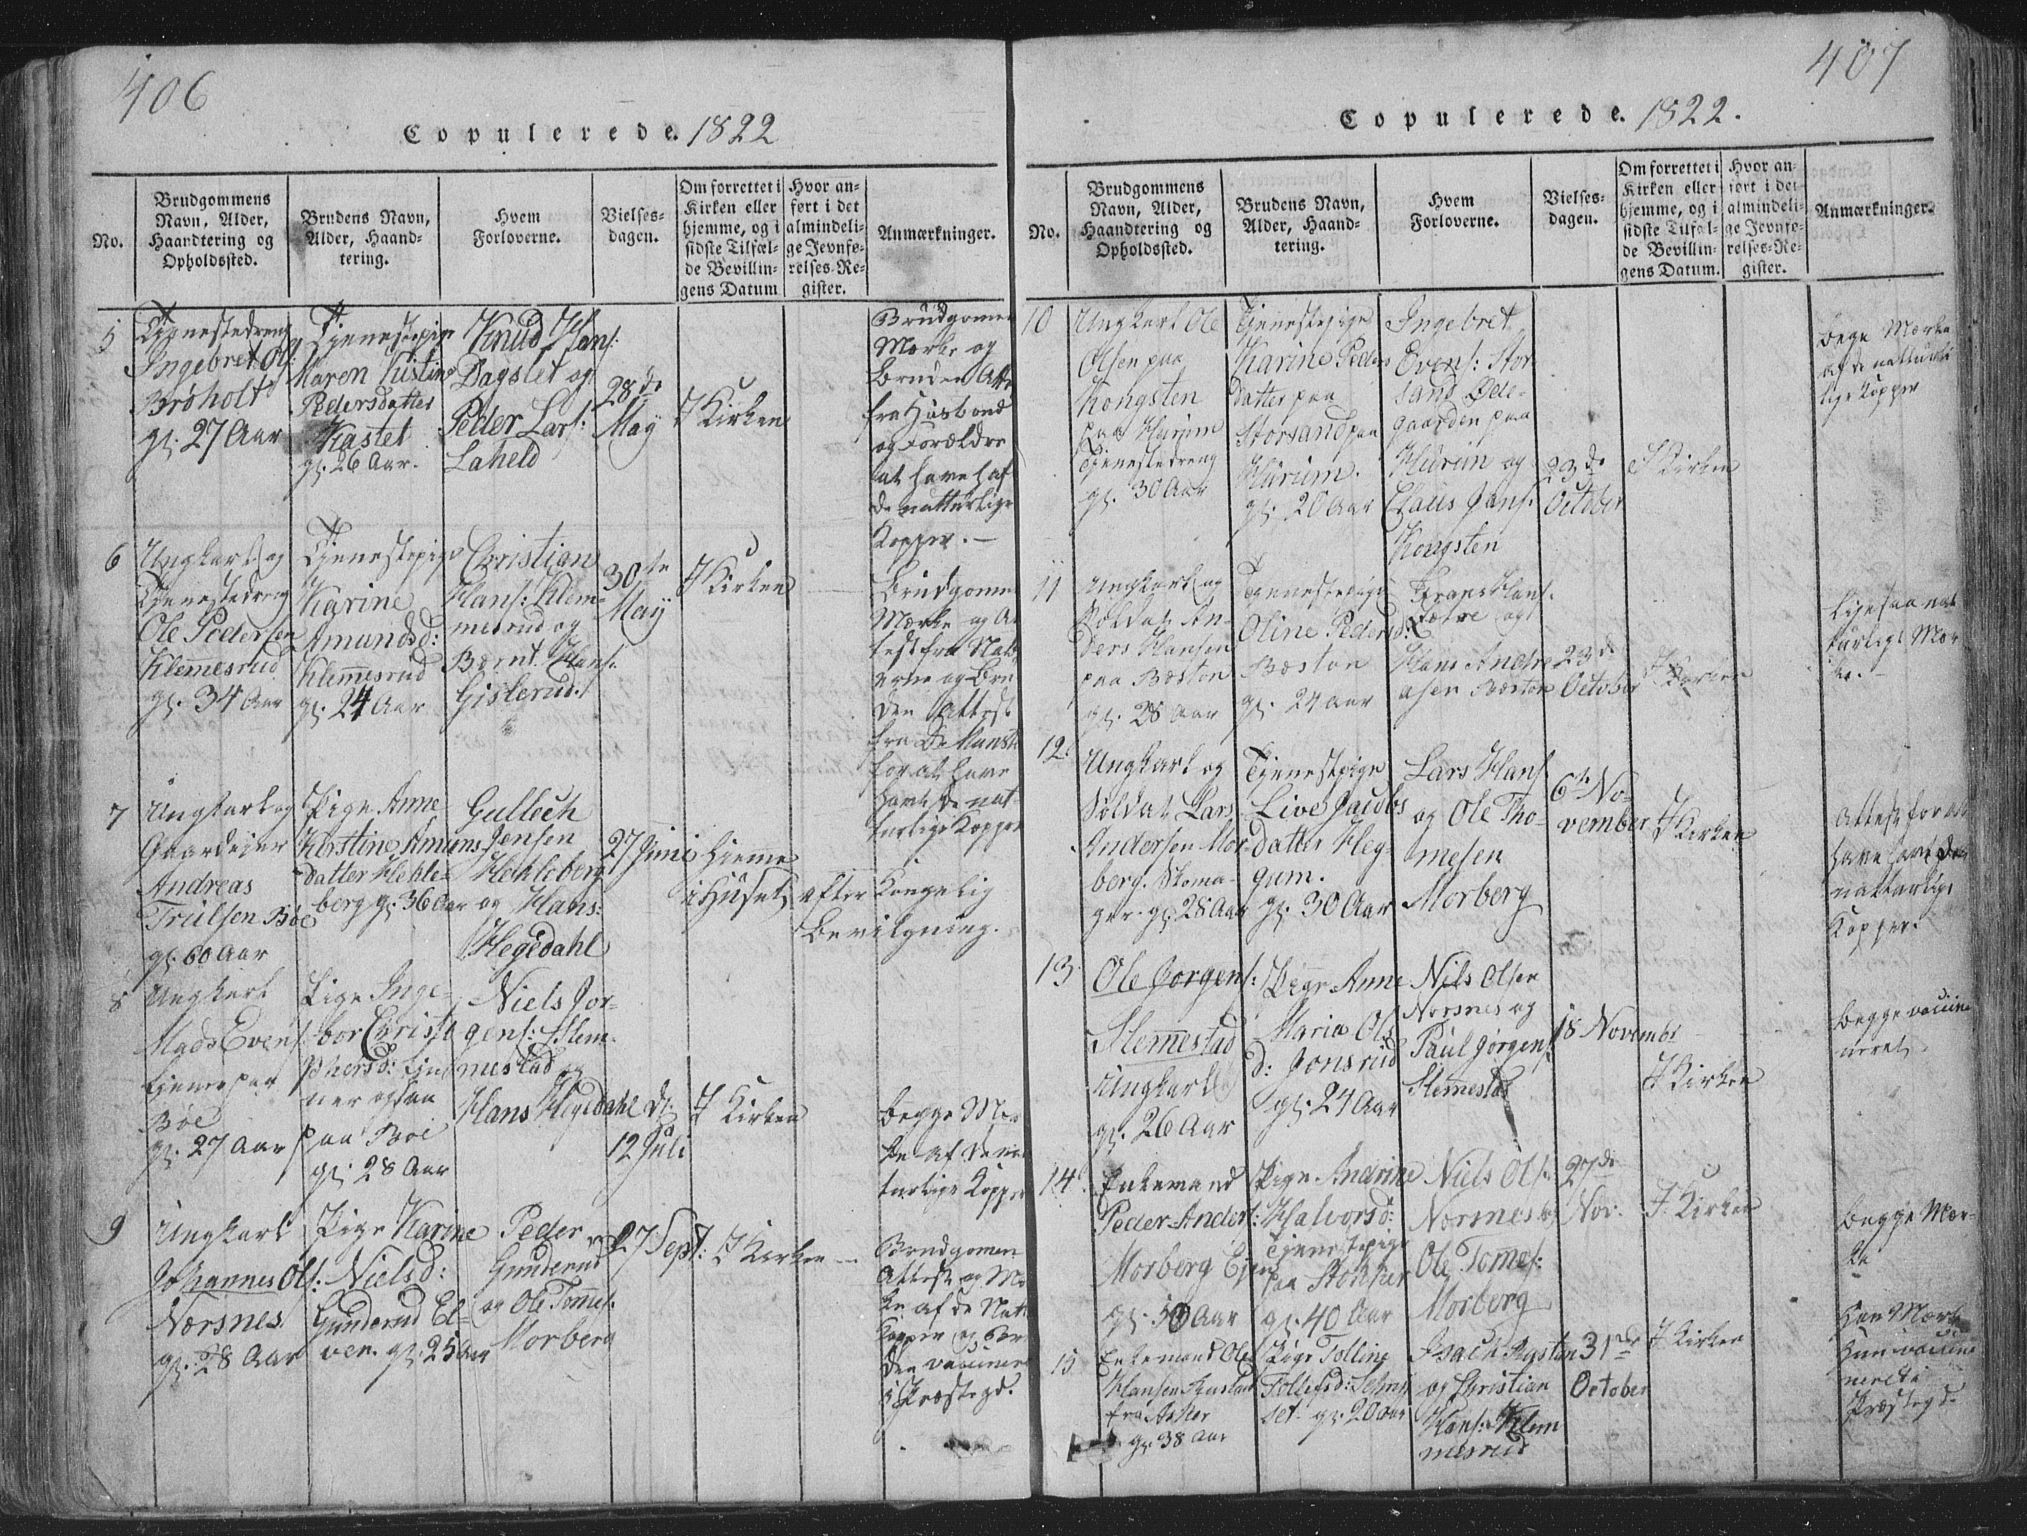 406
Copulerede. 1822
No.
Brudgommens
Navn, Alder,
Haandtering og
Opholdssted.
Brudens Navn,
Alder, Haand-
tering.
Hvem
Forloverne.
Vielses-
dagen.
Om forrettet i
Kirken eller
hjemme, og i
sidste Tilfæl-
de Bevillin-
gens Datum
Hvor an-
ført i det
almindeli-
ge Jevnfø-
relses-Re-
gister.
Anmærkninger.
5
Tjenestedreng
Ingebret Ols:
Brøholt
gl. 27 Aar
Tjenestepige
Maren Kistine
Pedersdatter
Kastet
gl. 26 Aar.
Knud Hans:
Dagslet og
Peder Lars:
Laheld
28de
May
I Kirken
Brudgomen
Mærke og
Bruden Atte
fra Husbond
og Forældre
at have haf
de natturlige
Kopper. —
6
Ungkarl og
Tjenestedreng
Ole Pedersen
Klemesrud
gl. 34 Aar
Tjenestepige
Karine
Amundsd:
Klemmesrud
gl. 24 Aar
Christian
Hans: Klem-
mesrud og
Bernt Hans:
Gislerud.
30te
May
I Kirken
Brudgomen
Mærke og A
test fra
og Bru
den Attest
fra
for at have
havt de nat-
turlige Kopper
7
Ungkarl og
Gaardejer
Andreas
Truelsen Bøe
gl. 60 Aar
Pige Anne
Kirstine Amuns
datter Hekle-
berg gl. 36 Aar
Gullech
Jensen
Hechleberg
og Hans:
Hegedahl
27 Juni
hjemme
i Huset
efter Kongelig
Bevilgning.
8
Ungkarl
Mads Evens:
tjener paa
Bøe
gl. 27 Aar
Pige Inge-
bor Christo
phersd: tje
ner ogsaa
paa Bøe
gl. 28 Aar
Niels Jor-
gens: Slem-
mestad og
Hans Hegedahl
d:
12 Juli
I Kirken
Begge Mær
ke af de na
turlige Kopper
9
Ungkarl
Johannes Ols:
Nærsnes
gl. 28 Aar
Pige Karine
Nielsd:
Gunderud El-
ven. gl. 25 Aar
Peder
Gunderud
og Ole Tomes:
Morberg
27 Sept:
I Kirken —
Brudgomen
Attest og Mær
ke af de Natt
Kopper og Bru
den vaccinere
i Præstegd.
407
Copulerede. 1822.
No.
Brudgommens
Navn, Alder,
Haandtering og
Opholdssted.
Brudens Navn,
Alder, Haand-
tering.
Hvem
Forloverne.
Vielses-
dagen.
Om forrettet i
Kirken eller
hjemme, og i
sidste Tilfæl-
de Bevillin-
gens Datum.
Hvor an-
ført i det
almindeli-
ge Jevnfø-
relses-Re-
gister.
Anmærkninger.
10
Ungkarl Ole
Olsen paa
Kongsten
paa Hurum
Tjenestedreng
gl. 30 Aar
Tjenestepige
Karine Peders
datter paa
Storsand paa
Hurum.
gl. 20 Aar
Ingebret
Evens: Stor
sand Øde-
gaarden paa
Hurum og
Claus Jans:
Kongsten
23de
October
I Kirken
Begge Mærke
af de natturli
lige Kopper
11
Ungkarl og
Soldat An-
ders Hansen
paa Bøston
gl. 28 Aar
Tjenestepige
Oline Pedersd:
Bæston
gl. 24 aar
Frans Hans:
Sætre og
Hans Andre
asen Bæston
23de
October
I Kirken
Ligesaa nat
turligt Mær
ke. —
12
Ungkarl og
Soldat Lars
Andersen Mor
berg. Skoma-
ger. gl. 28 Aar
Tjenestpige
Live Jacobs
datter Heg-
gum.
gl. 30 Aar
Lars Hans:
og Ole Tho-
mesen
Morberg
6te No-
vember
I Kirken
Attest for at
have havt de
natturlige
Kopper.
13.
Ole Jorgens:
Slemmestad
Ungkarl
gl. 26 Aar
Pige Anne
Maria Ols
d: Jonsrud
gl. 24 Aar
Nils Olsen
Nærsnes og
Paul Jørgens:
Slemestad
18 Novembr
I Kirken
Begge vacci
neret.
14
Enkemand
Peder Anders:
Morberg Ejer
gl. 50 Aar
Pige Andrine
Halvorsd:
Tjenestepige
paa Stokker
gl. 40 Aar
Niels Ols:
Nærsnes og
Ole Tomes:
Morberg
27de
Nov.
I Kirken
Begge Mær-
ke
15
Enkemand Ole
Hansen
fra Asker
gl. 38 Aar
Pige Tolline
Tollefsd:
set gl. 20 aar
Isach
og Christian
Hans: Klem
mesrud
31de
October
I Kirken
Han Mærke
Hun vacci
neret i
Præstegd.